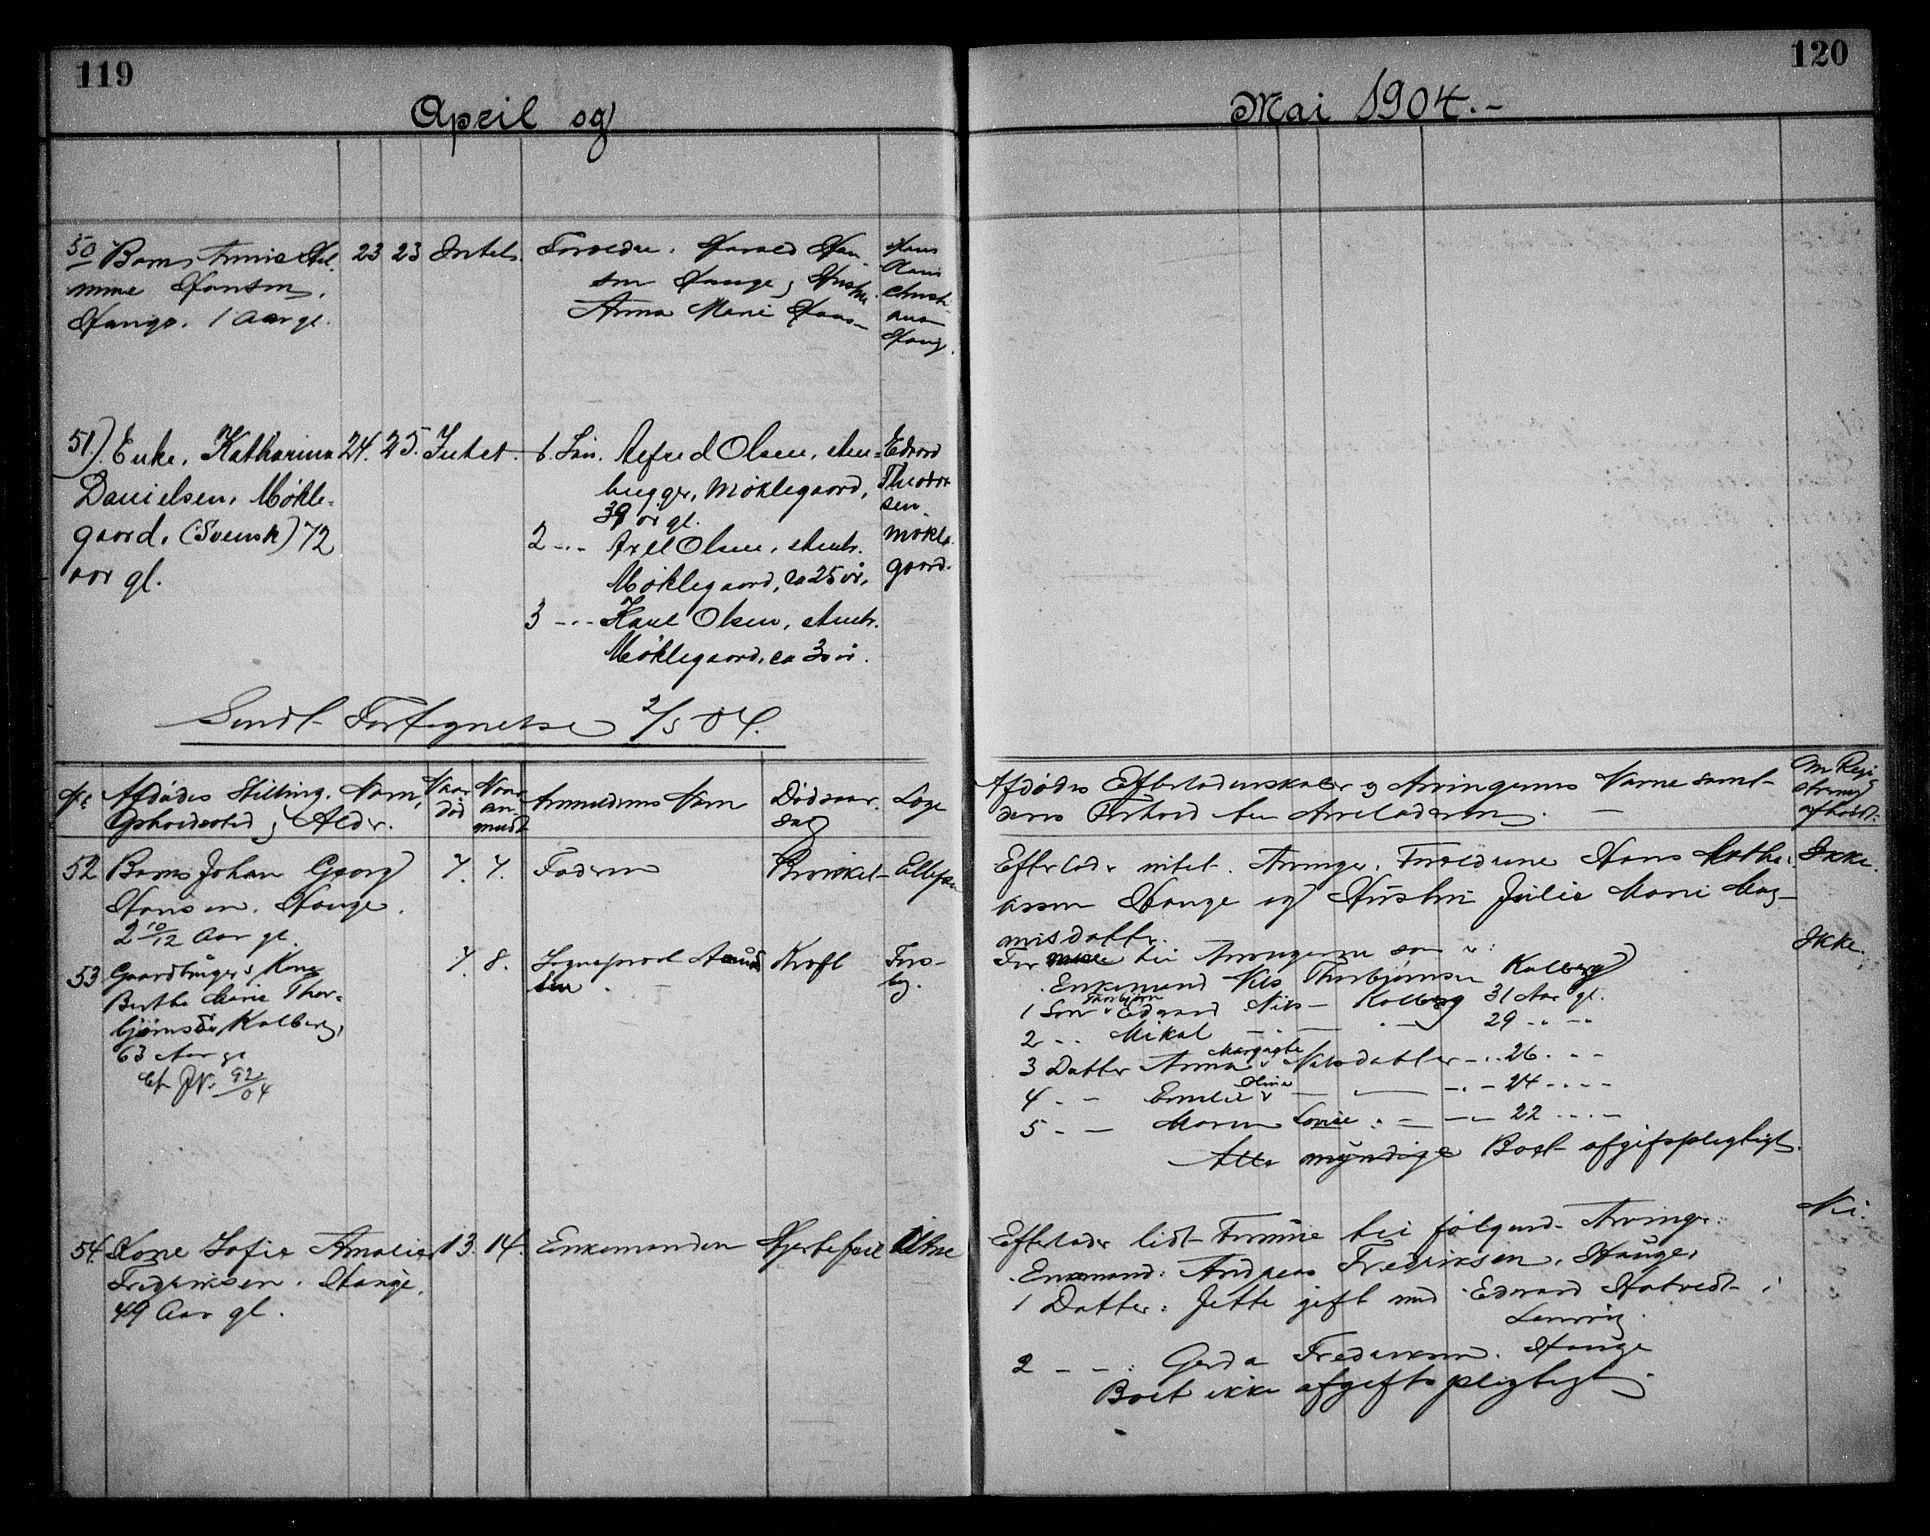 119
April og
50 Barn,
Hansen,
Hauge. 1 Aar gl.
23 23 Intet.
Forældre: Harald Han-
sen Hauge, Hustru
Anna Marie
Hans
Hauge
51). Enke, Katharina
Danielsen, Møkle-
gaard, (Svensk) 72
aar gl.
24. 25. Intet.
1. Søn. Alfred Olsen, sten-
hugger, Møklegaard,
39 år gl.
2 -..- Axel Olsen, stenh.
Møklegaard, ca 25 år,
3 -..- Karl Olsen, stenh.
Møklegaard, ca 30 år.
Edvard
Theodor
sen.
Møkle-
gaard.
Sendt Fortegnelse 2/5 04.
No Afdødes Stilling, Navn,
Opholdssted, Alder.
Naar
død
Naar
an-
meldt
Anmelderens Navn
Dødsaar-
sag
Læge
52 Barn Johan Georg
Hansen. Hauge.
2 10/12 Aar gl.
7. 7. Faderen Ellefsen
53 Gaardbruger's Kone
Berthe Marie Thor-
bjørnsen Kolberg,
63 Aar gl
cf. JN. 92/04
7. 8. Sogneprest
Kræft
54. Kone Sofie Amalie
Fredriksen. Hauge.
49 Aar gl.
13. 14. Enkemanden Hjertefeil
120
Mai 1904.-
Afdødes Efterladenskaber og Arvingernes Navne samt
deres Forhold til Arveladeren.
Om Regi-
strering
afholdt.
Efterlader intet. Arvinger: Forældrene Hans Mathi-
assen Hauge og Hustru Julie Marie Mag-
nisdatter.
Ikke.
For til Arvingerne som er:
Enkemand Nils Thorbjørnsen Kolberg
1 Søn Thorbjørn Edvard Nils- Kolberg 31 Aar gl.
2 -..- Mikal 29 -..-
3 Datter Anna Margrethe Nilsdatter -..- 26 -..-
4 - - Emilie Oline - 24 -..-
5 - - Maren Lovise - 22 -..-
Alle myndige Boet afgiftspligtigt.
Ikke.
Efterlader lidt Formue til følgende Arvinger:
Enkemand: Andreas Fredriksen, Hauge,
1 Datter: Jette gift med Edvard Hatvedt i
Larvig.
2 - - : Gerda Fredriksen. Hauge
Boet ikke afgiftspligtigt.
Nei.